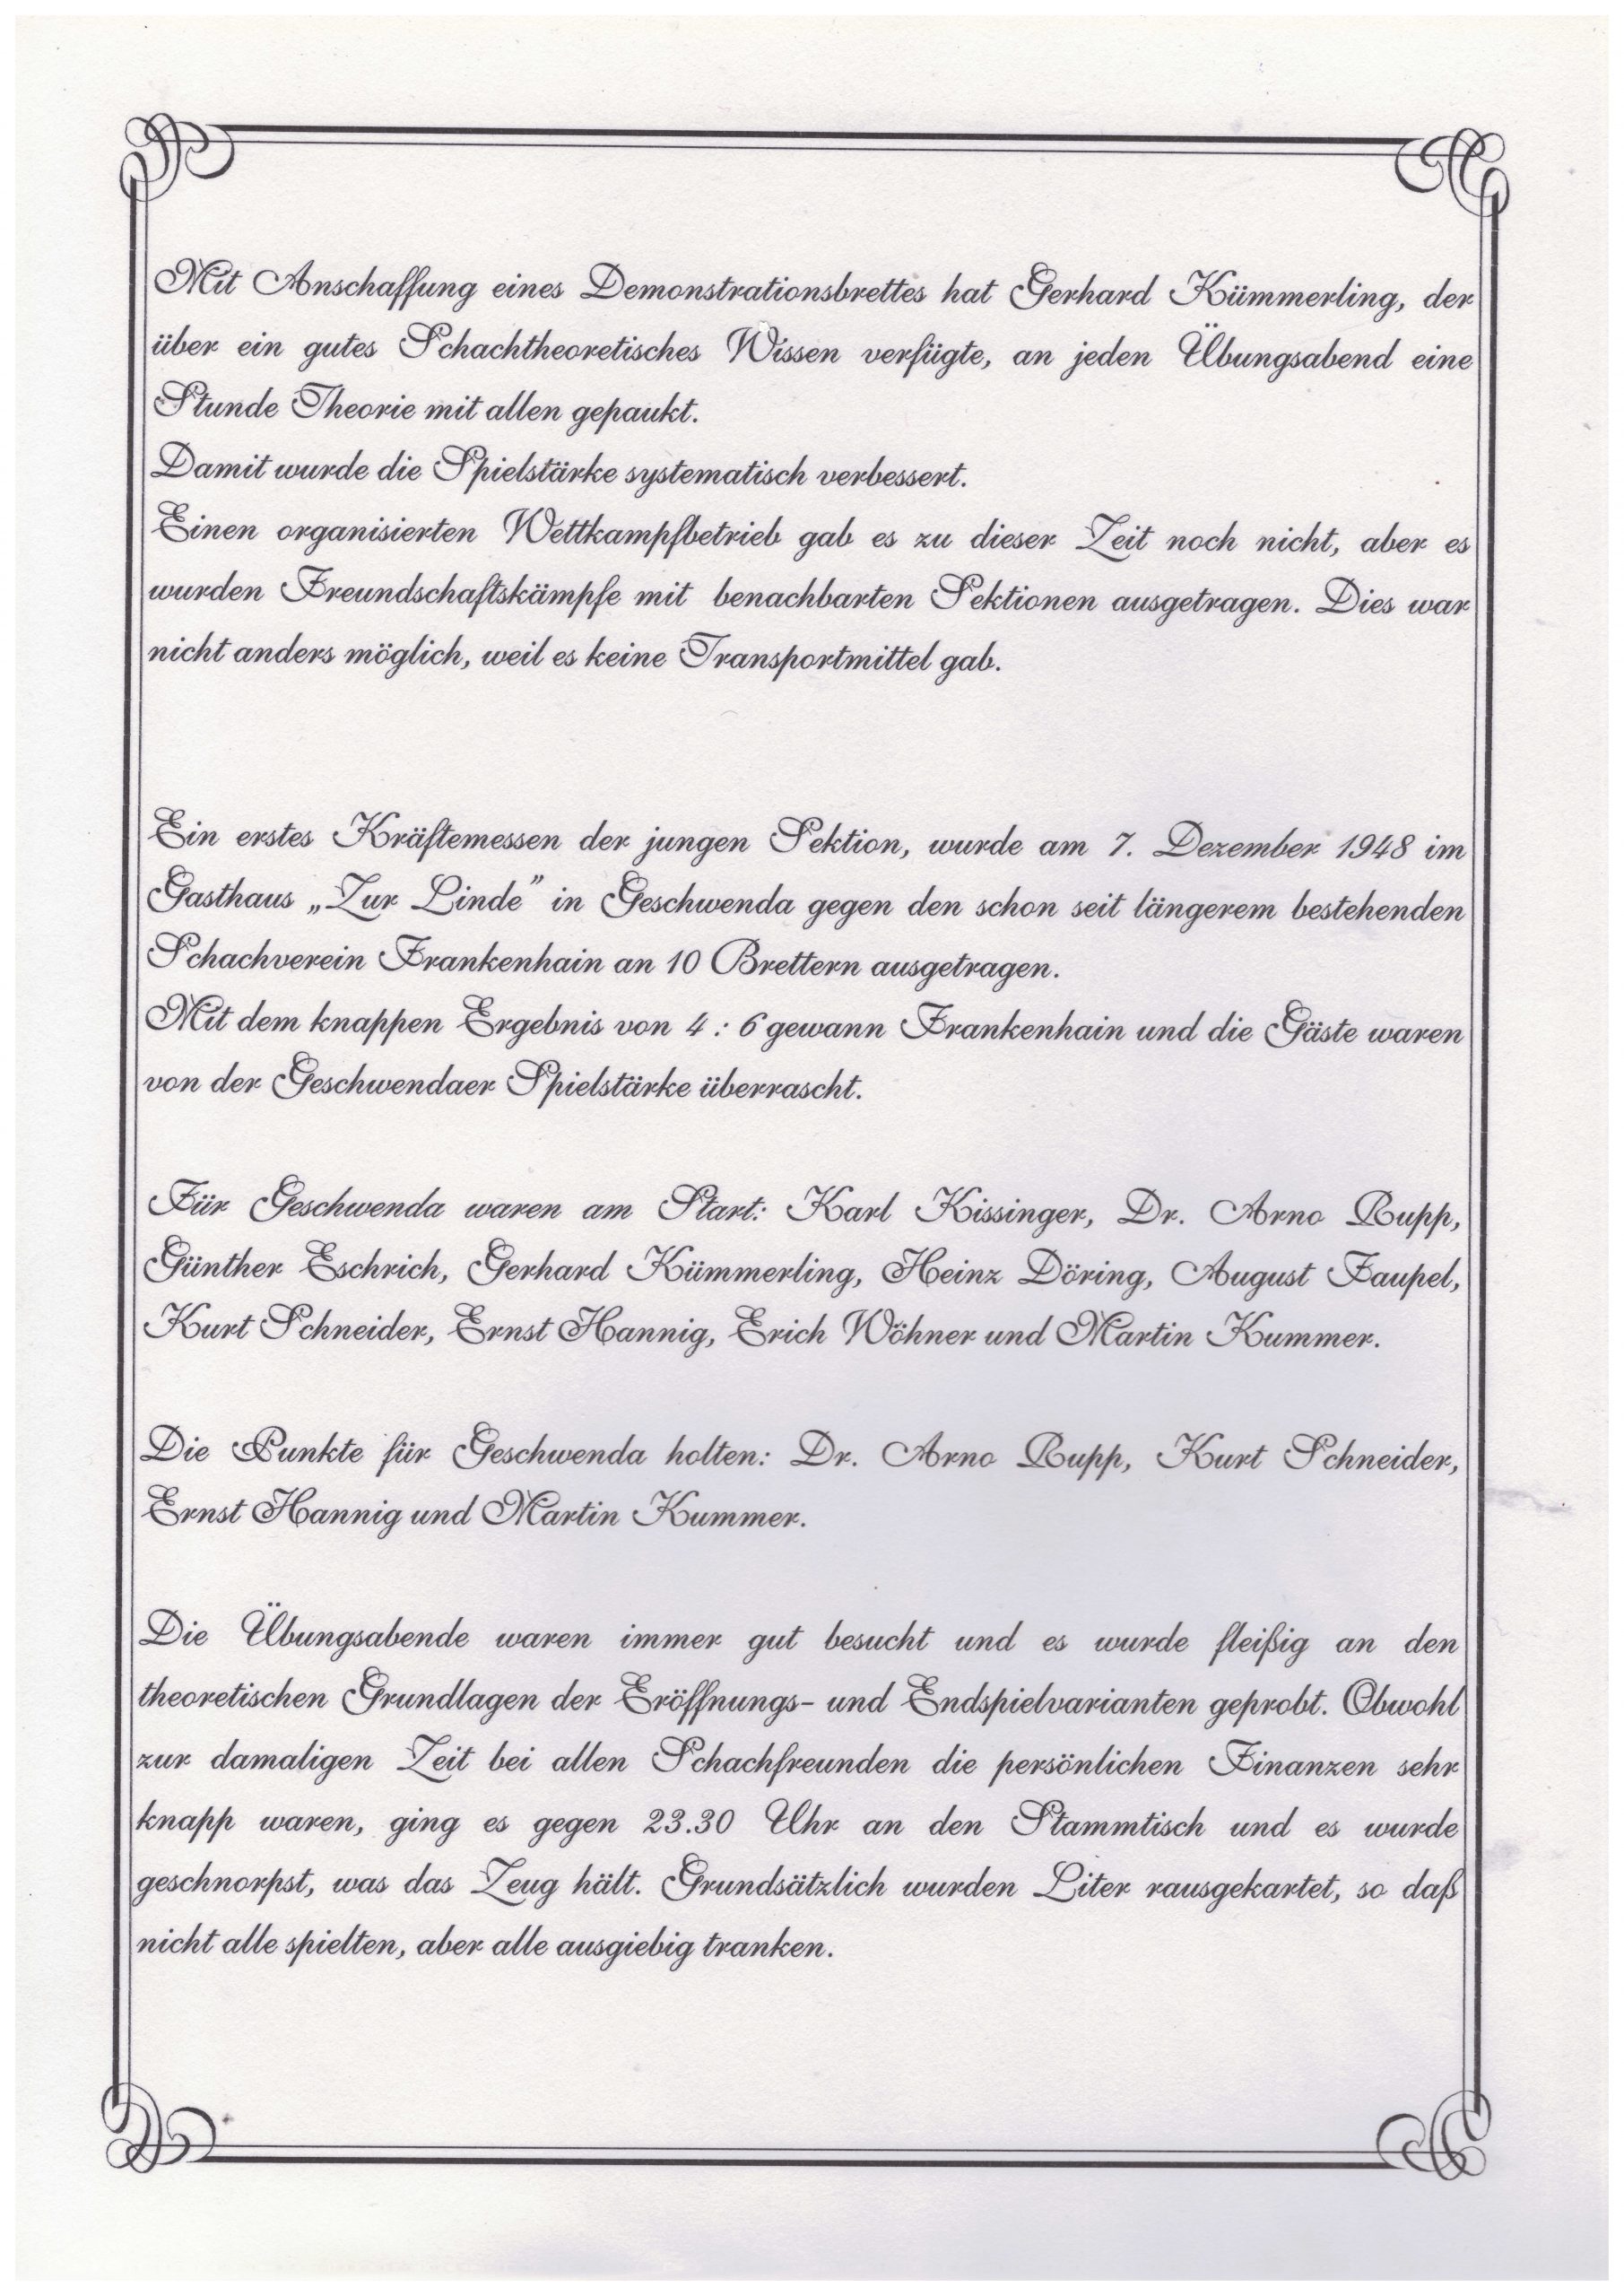 Mit Anschaffung eines Demonstrationsbrettes hat Gerhard Kümmerling, der
über ein gutes Schachtheoretisches Wissen verfügte, an jeden Übungsabend eine
Stunde Theorie mit allen gepaukt.
Damit wurde die Spielstärke systematisch verbessert.
Einen organisierten Wettkampfbetrieb gab es zu dieser Zeit noch nicht, aber es
wurden Freundschaftskämpfe mit benachbarten Sektionen ausgetragen. Dies war
nicht anders möglich, weil es keine Transportmittel gab.
Ein erstes Kräftemessen der jungen Sektion, wurde am 7. Dezember 1948 im
Gasthaus „Zur Linde” in Geschwenda gegen den schon seit längerem bestehenden
Schachverein Frankenhain an 10 Brettern ausgetragen.
Mit dem knappen Ergebnis von 4 : 6 gewann Frankenhain und die Gäste waren
von der Geschwendaer Spielstärke überrascht.
Für Geschwenda waren am Start: Karl Kissinger, Dr. Arno Rupp,
Günther Eschrich, Gerhard Kümmerling, Heinz Döring, August Faupel,
Kurt Schneider, Ernst Hannig, Erich Wöhner und Martin Kummer.
Die Punkte für Geschwenda holten: Dr. Arno Rupp, Kurt Schneider,
Ernst Hannig und Martin Kummer.
Die Übungsabende waren immer gut besucht und es wurde fleißig an den
theoretischen Grundlagen der Eröffnungs- und Endspielvarianten geprobt. Obwohl
zur damaligen Zeit bei allen Schachfreunden die persönlichen Finanzen sehr
knapp waren, ging es gegen 23.30 Uhr an den Stammtisch und es wurde
geschnorpst, was das Zeug hält. Grundsätzlich wurden Liter rausgekartet, so daß
nicht alle spielten, aber alle ausgiebig tranken.